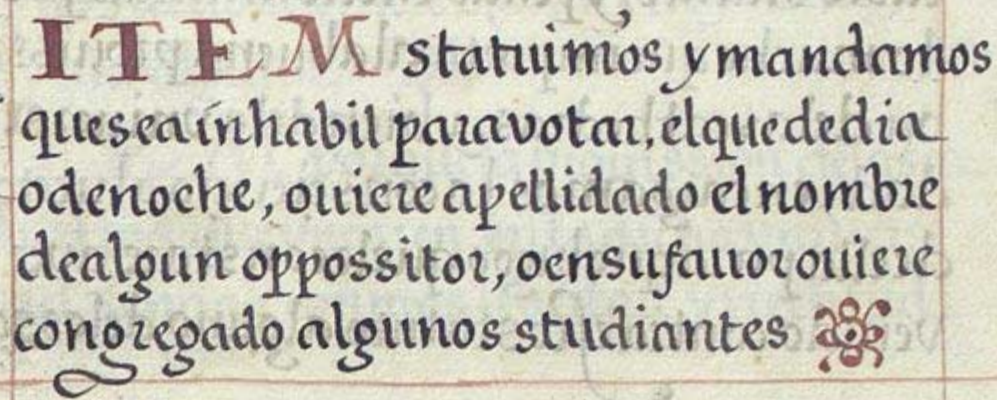 ITEM statuimos y mandamos
que sea inhabil para votar, el que de dia
o de noche, ouiere apellidado el nombre
de algun oppossitor, o en su fauor ouiere
congregado algunos studiantes